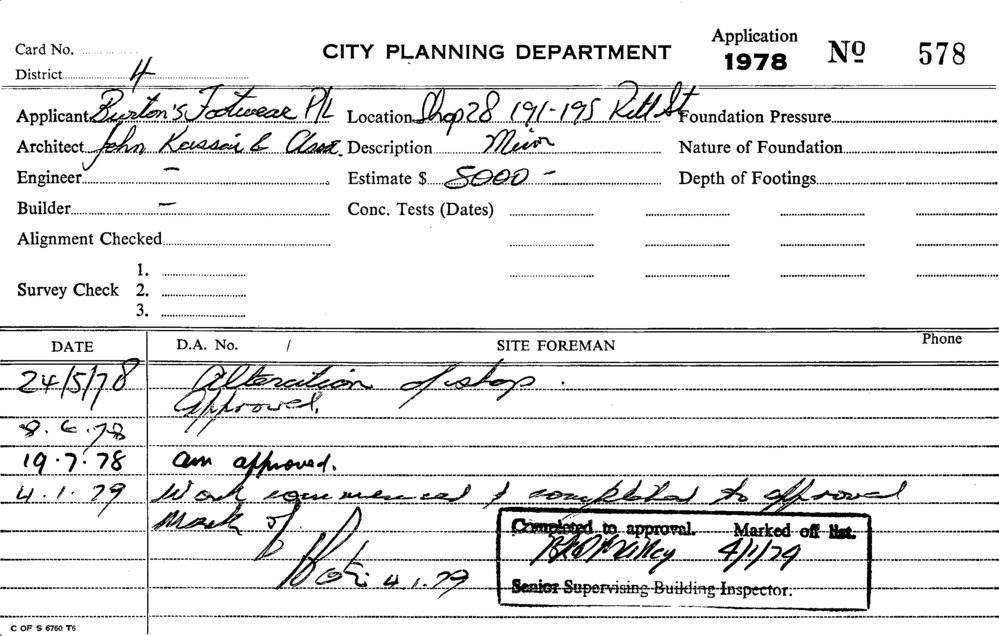 Card No. CITY PLANNING DEPARTMENT Application 1978 No 578
District 4
Applicant Burton's Footwear P/L Location Shop 28 191-195 Pitt St Foundation Pressure
Architect John Kassai & Assoc. Description Minor Nature of Foundation
Engineer - Estimate $ 5000 - Depth of Footings
Builder - Conc. Tests (Dates)
Alignment Checked
1.
Survey Check 2.
3.
DATE D.A. No. / SITE FOREMAN Phone
24/5/78 Alteration of shop.
Approved.
8.6.78
19.7.78 am approved.
4.1.79 Work commenced & completed to approval
Mark of
Completed to approval. Marked off list.
4/1/79
4.1.79
Senior Supervising Building Inspector.
C OF S 6760 T6